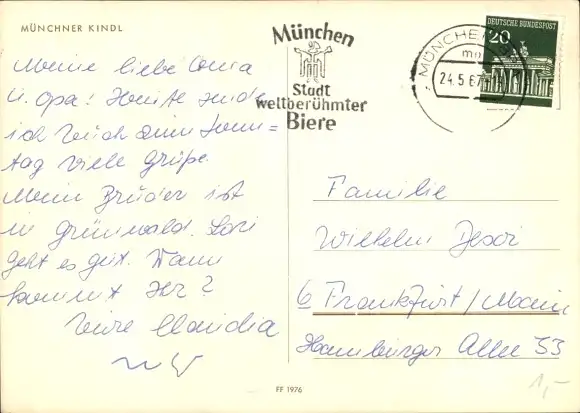 MÜNCHNER KINDL
Meine liebe Oma
u. Opa! Heute sende
ich Euch zum Sonn=
tag viele Grüße.
Mein Bruder ist
in Grünwald.
geht es gut. Wann
kommt Ihr?
Eure Claudia
München
Stadt
weltberühmter
Biere
MÜNCHEN
24.5.67
DEUTSCHE BUNDESPOST
20
Familie
Wilhelm
6 Frankfurt/Main
Hamburger Allee 53
1,-
FF 1976